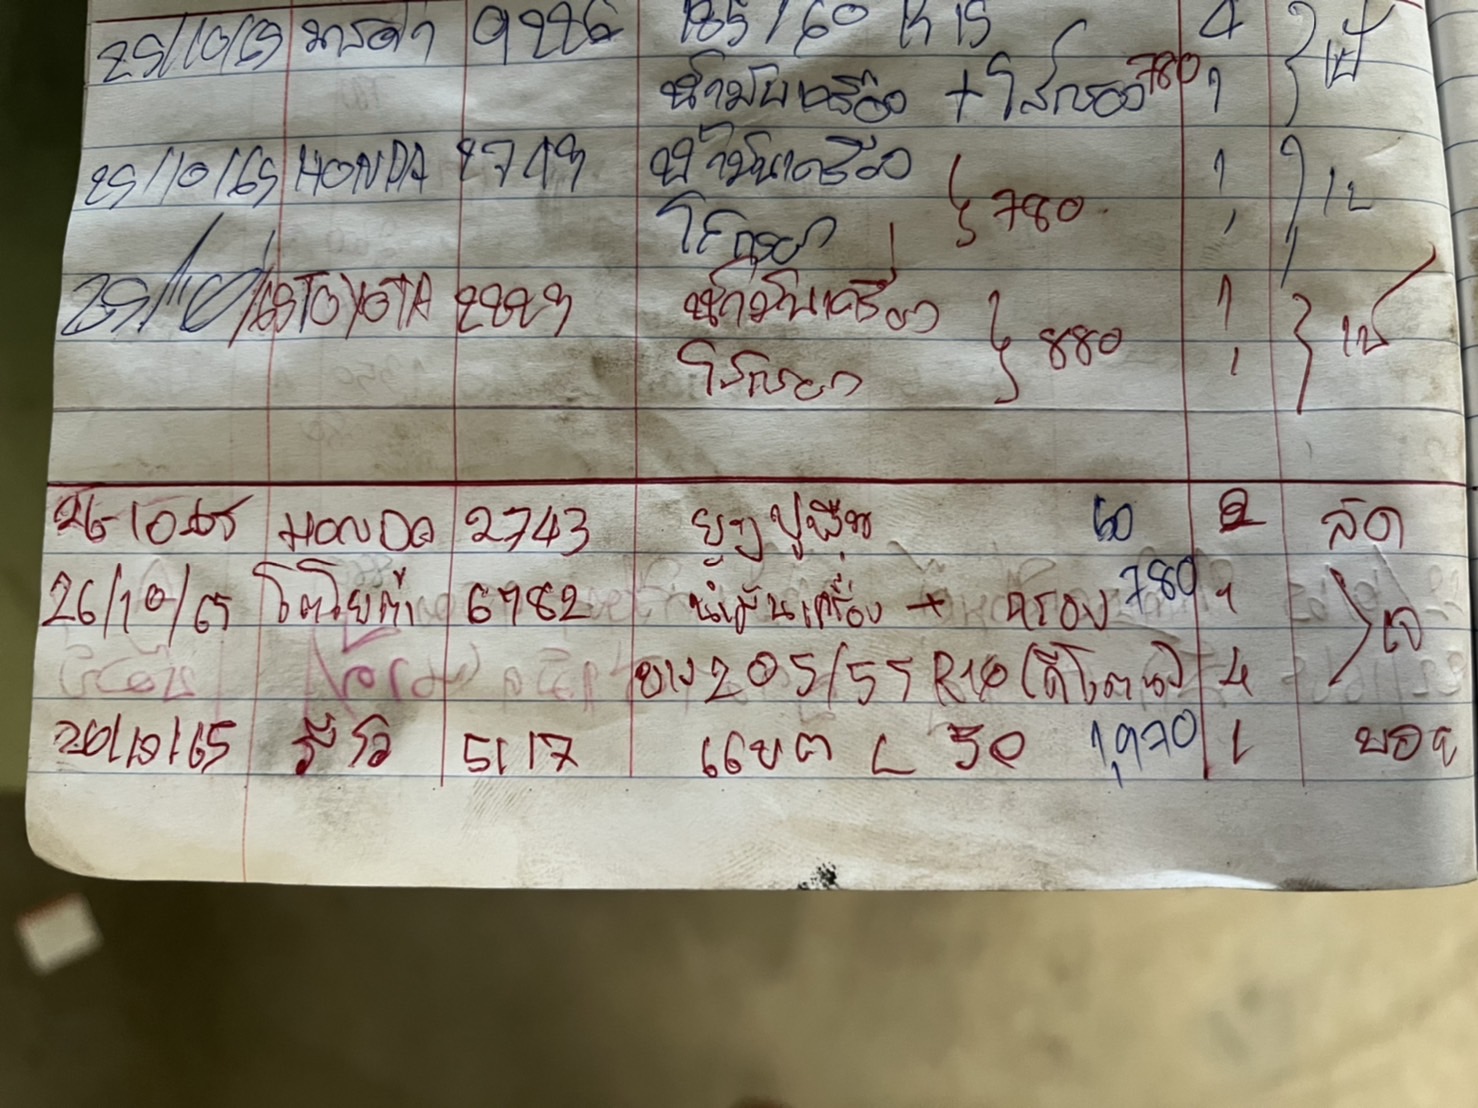 25/10/65 มาสด้า 9226 185/60 R 15 4
น้ำมันเครื่อง + ไส้กรอง 780 1
25/10/65 HONDA 2743 น้ำมันเครื่อง 1
ไส้กรอง 780 1
25/10/65 TOYOTA 2223 น้ำมันเครื่อง 1
ไส้กรอง 880 1
26 10 65 HONDA 2743 60 2 ลัด
26/10/65 โตโยต้า 6782 น้ำมันเครื่อง + กรอง 780 1
ยาง 205/55 R16 4
26/10/65 รีโว้ 5117 แบต L 50 1,970 1 บอย